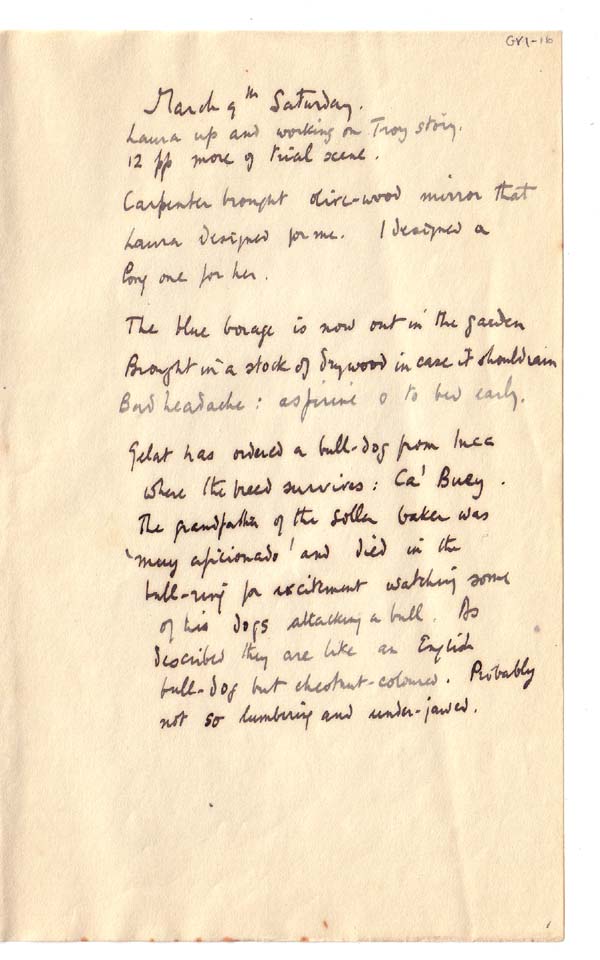 GR1-116
March 9th Saturday.
Laura up and working on Troy story.
12 pp more of trial scene.
Carpenter brought olive-wood mirror that
Laura designed for me. I designed a
one for her.
The blue borage is now out in the garden
Brought in a stock of drywood in case it should rain
Bad headache: aspirine & to bed early.
Gelat has ordered a bull-dog from Inca
where the breed survives: Ca' Buey.
The grandfather of the Soller baker was
'muy aficionado' and died in the
bull-ring for excitement watching some
of his dogs attacking a bull. As
described they are like an English
bull-dog but chestnut-coloured. Probably
not so lumbering and under-jawed.